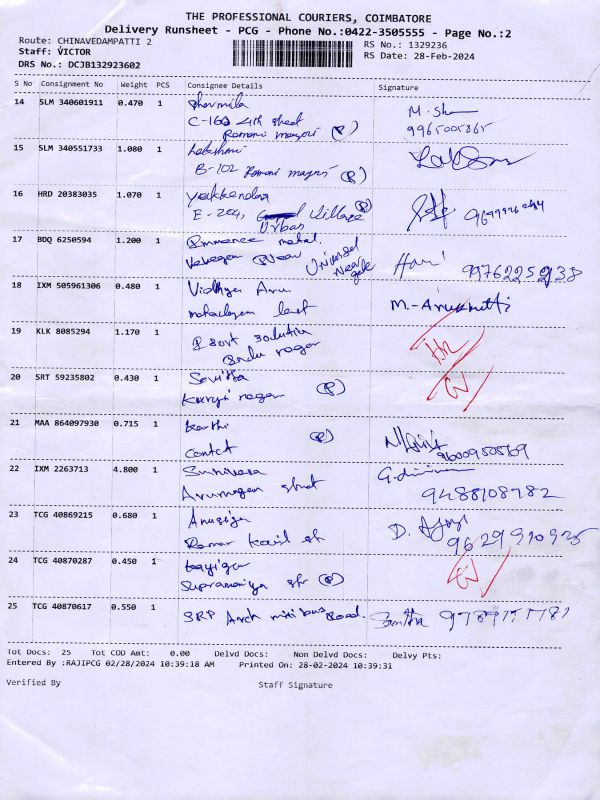 THE PROFESSIONAL COURIERS, COIMBATORE
Delivery Runsheet - PCG - Phone No.:0422-3505555 - Page No.:2
Route: CHINAVEDAMPATTI 2
RS No.: 1329236
Staff: VICTOR
RS Date: 28-Feb-2024
DRS No.: DCJB132923602
S No Consignment No Weight PCS Consignee Details Signature
14 SLM 340601911 0.470 1 Sharmila M. Sha
C-160 4th street 9965005865
Ramani mayuri (P)
15 SLM 340551733 1.080 1 Lakshmi
B-102 Ramani mayuri (P)
16 HRD 20383035 1.070 1
E-204, Village (P)
Urban
17 BDQ 6250594 1.200 1 metal. Universal Hari
near gate 9976225238
18 IXM 505961306 0.480 1 Vidhya Anu M.-Arukkutti
19 KLK 8085294 1.170 1 solution
Indu nagar
20 SRT 59235802 0.430 1 Savitha
nagar (P)
21 MAA 864097930 0.715 1 Karthi
Contct (P) 9600950569
22 IXM 2263713 4.800 1 Sunivasa
Arumugam street 9488108782
23 TCG 40869215 0.680 1 Anusiya D.
Ramar Kovil st 9629910925
24 TCG 40870287 0.450 1
Supramaniya str (P)
25 TCG 40870617 0.550 1 SRP Arch mini bus Road. Santha
Tot Docs: 25 Tot COD Amt: 0.00 Delvd Docs: Non Delvd Docs: Delvy Pts:
Entered By :RAJIPCG 02/28/2024 10:39:18 AM Printed On: 28-02-2024 10:39:31
Verified By Staff Signature